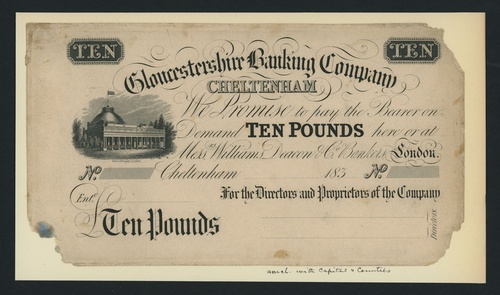 TEN TEN
Gloucestershire Banking Company
CHELTENHAM
We Promise to pay the Bearer on
Demand TEN POUNDS here or at
Messrs Williams, Deacon & Co Bankers, London.
No Cheltenham 183 No
Entd For the Directors and Proprietors of the Company
£ Ten Pounds
Director
amal. with Capital & Counties